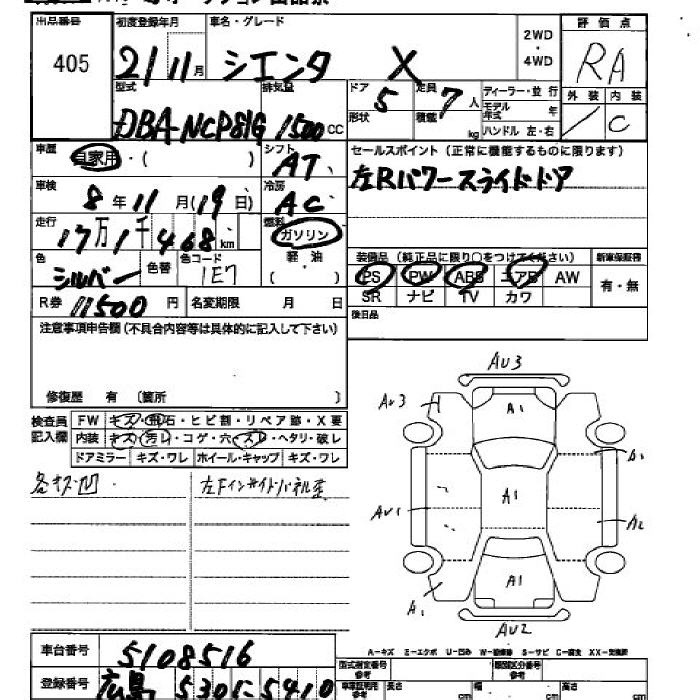 出品番号
405
初度登録年月
21/11月
車名・グレード
シエンタ X
2WD
・
4WD
評価点
RA
外装 内装
/ C
型式
DBA-NCP81G
排気量
1500cc
ドア
形状
5
定員
積載
7人
kg
ディーラー・並行
モデル
年式 年
ハンドル 左・右
車歴
自家用・( )
シフト
AT
セールスポイント(正常に機能するものに限ります)
左Rパワースライドドア
車検
8年11月(19日)
冷房
AC
走行
17万1千468km
燃料
ガソリン
軽油
( )
色
シルバー
色替
色コード
1E7
装備品(純正品に限り○をつけてください)
新車保証書
PS PW ABS エアB AW
SR ナビ TV カワ
有・無
R券 11500円
名変期限 月 日
後日品
注意事項申告欄(不具合内容等は具体的に記入して下さい)
修復歴 有 (箇所 )
検査員
記入欄
FW キズ・飛石・ヒビ割・リペア跡・X要
内装 キズ・汚レ・コゲ・穴・スレ・ヘタリ・破レ
ドアミラー キズ・ワレ ホイール・キャップ キズ・ワレ
各キズ凹
左Fインサイドパネル歪
AU3
AU3
A1
A1
AU1
A1
A2
A1
A1
AU2
A-キズ E-エクボ U-凹み W-補修跡 S-サビ C-腐食 XX-交換済
車台番号
5108516
登録番号
広島 530 に 5410
型式指定番号
参考
類別区分番号
参考
車庫証明用
参考
長さ
cm
幅
cm
高さ
cm